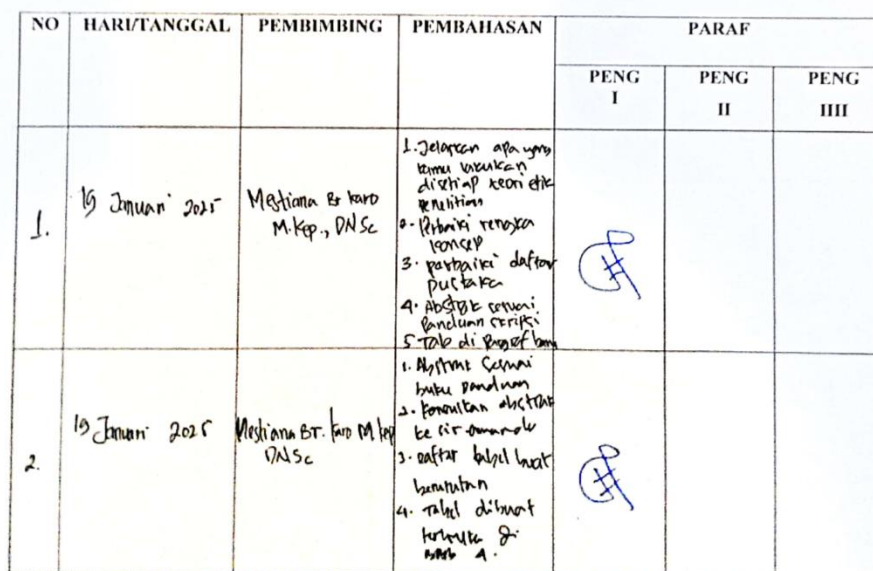 NO HARI/TANGGAL PEMBIMBING PEMBAHASAN PARAF
PENG I
PENG II
PENG IIII
1.
19 Januari 2025
Mestiana Br Karo
M.Kep., DNSc
1. Jelaskan apa yang
kamu lakukan
disetiap teori etik
Penelitian
2. Perbaiki rengka
konsep
3. perbaiki daftar
pustaka
4. Abstrak sesuai
Panduan skripsi
5. Tab di Paragraf baru
2.
19 Januari 2025
Mestiana BT. Karo M.kep
DNSc
1. Abstrak Sesuai
buku panduan
2. konsultan abstrak
ke sir
3. daftar tabel buat
berurutan
4. Tabel dibuat
terbuka di
BAB 4.